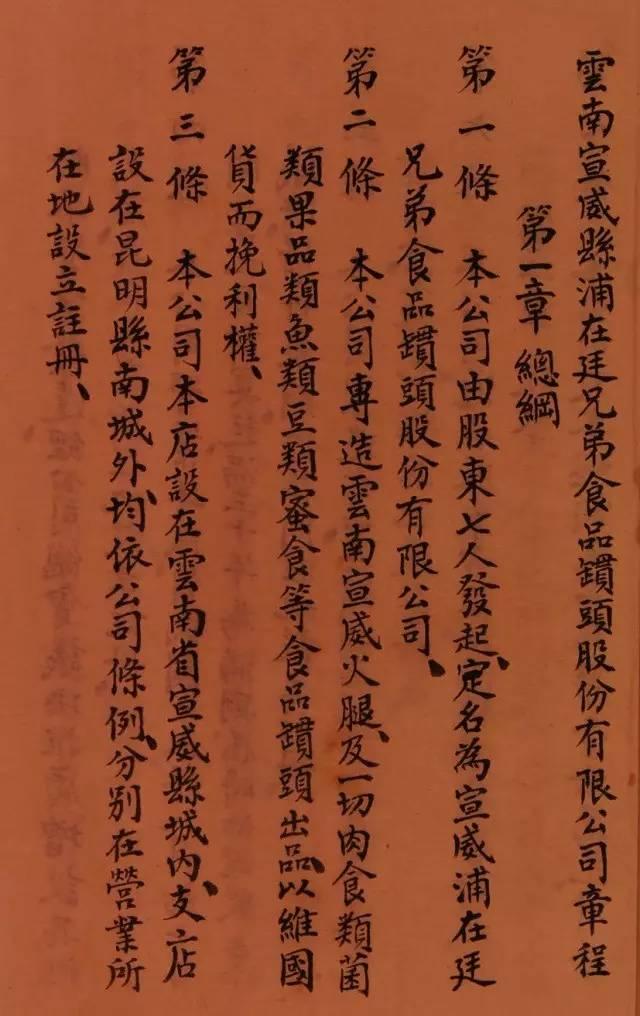 雲南宣威縣浦在廷兄弟食品罐頭股份有限公司章程
第一章 總綱
第一條 本公司由股東七人發起、定名為宣威浦在廷
兄弟食品罐頭股份有限公司、
第二條 本公司專造雲南宣威火腿、及一切肉食類菌
類果品類魚類豆類蜜食等食品罐頭出品、以維國
貨而挽利權、
第三條 本公司本店設在雲南省宣威縣城內、支店
設在昆明縣南城外、均依公司條例、分別在營業所
在地設立註冊、